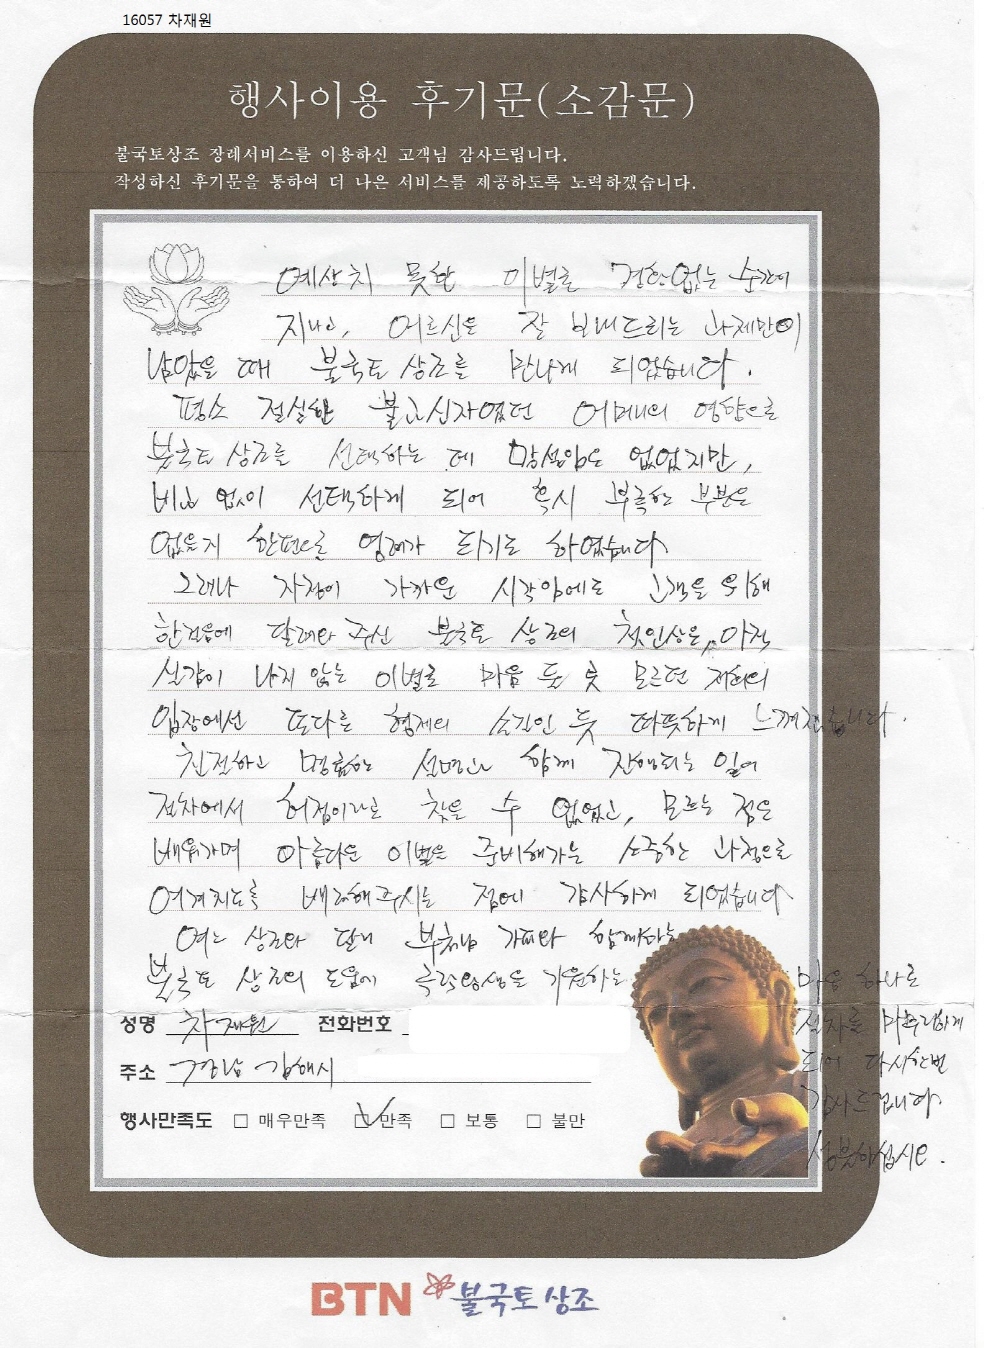 16057 차재원
행사이용 후기문(소감문)
불국토상조 장례서비스를 이용하신 고객님 감사드립니다.
작성하신 후기문을 통하여 더 나은 서비스를 제공하도록 노력하겠습니다.
예상치 못한 이별로 경황없는 순간이
지나고, 어르신을 잘 보내드리는 과제만이
남았을 때 불국토 상조를 만나게 되었습니다.
평소 절실한 불교신자였던 어머니의 영향으로
불국토 상조를 선택하는 데 망설임은 없었지만,
비교 없이 선택하게 되어 혹시 부족한 부분은
없을지 한편으로 염려가 되기도 하였습니다
그러나 자정이 가까운 시각임에도 고객을 위해
한걸음에 달려와 주신 불국토 상조의 첫인상은, 아직
실감이 나지 않는 이별로 마음 둘 곳 모르던 저희의
입장에선 또다른 형제의 손길인 듯 따뜻하게 느껴졌습니다.
친절하고 명료한 설명과 함께 진행되는 일여
절차에서 허점이라곤 찾을 수 없었고, 모르는 점은
배워가며 아름다운 이별을 준비해가는 소중한 과정으로
여겨지도록 배려해주시는 점에 감사하게 되었습니다
여느 상조와 달리 부처님 가피와 함께하는
불국토 상조의 도움에 극락왕생을 기원하는 마음 하나로
절차를 마무리하게
되어 다시한번
감사드립니다.
성불하십시오.
성명 차재원 전화번호
주소 경남 김해시
행사만족도 □ 매우만족 ☑ 만족 □ 보통 □ 불만
BTN 불국토상조